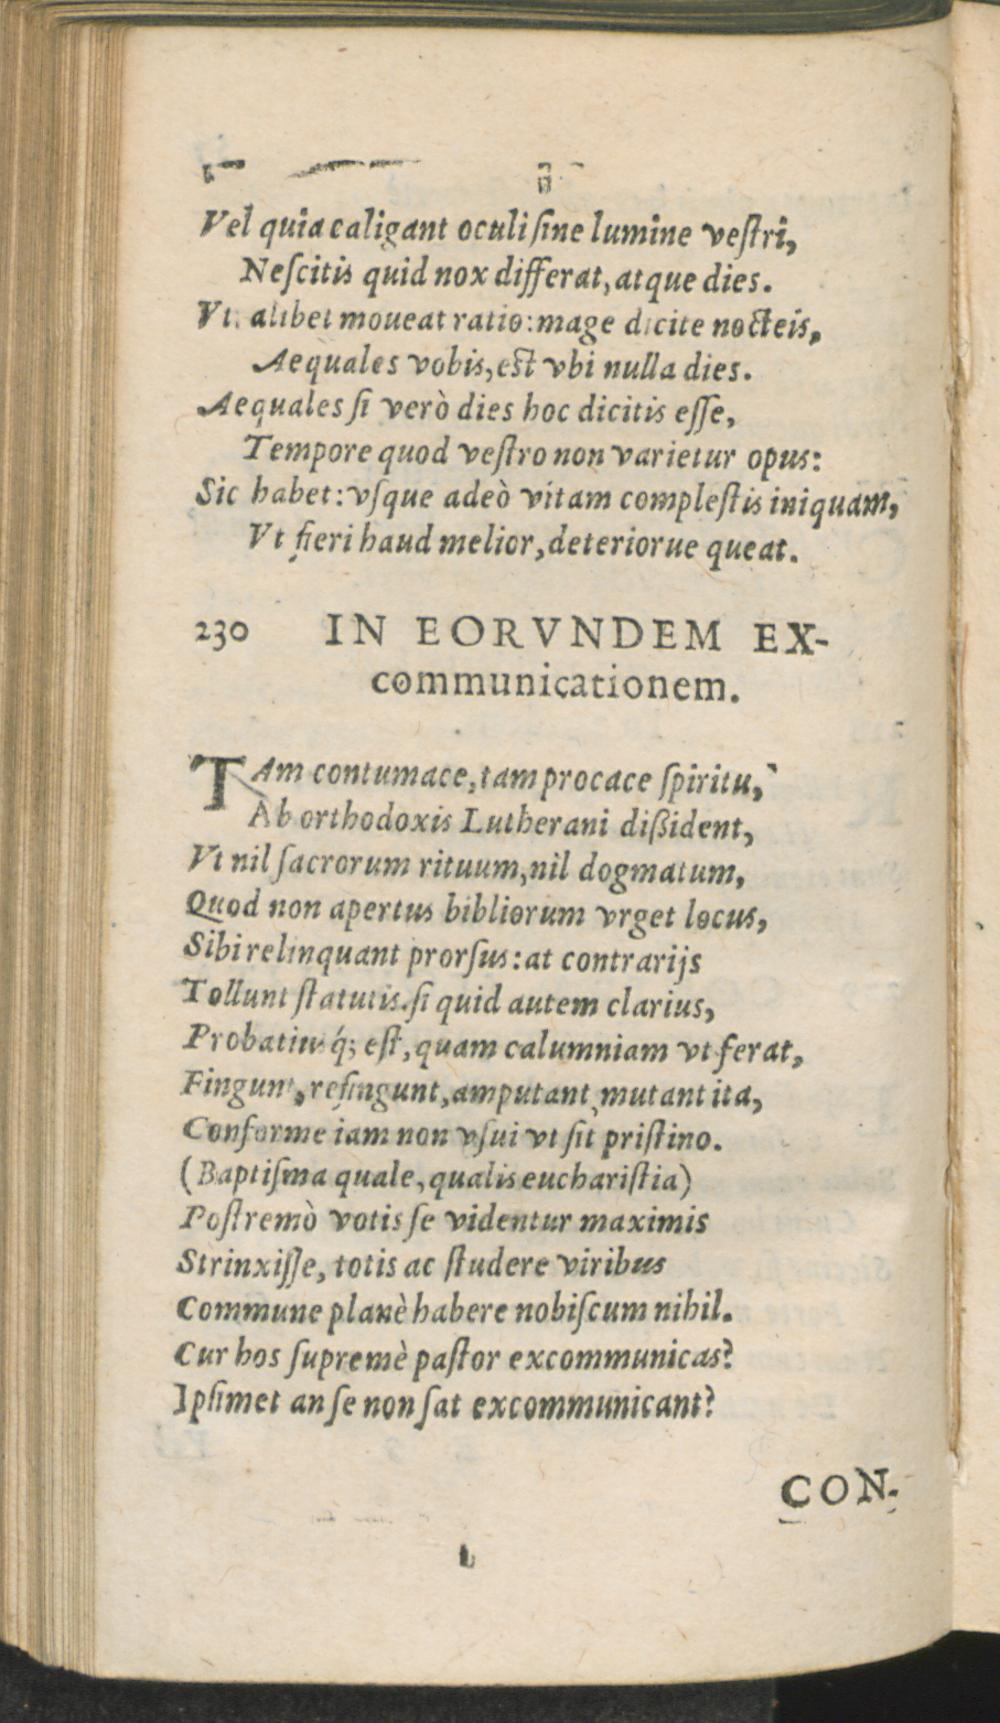 Vel quia caligant oculi ſine lumine veſtri,
Neſcitis quid nox differat, atque dies.
Vt alibet moueat ratio: mage dicite nocteis,
Aequales vobis, est vbi nulla dies.
Aequales ſi verò dies hoc dicitis eſſe,
Tempore quod veſtro non varietur opus:
Sic habet: vſque adeò vitam compleſtis iniquam,
Vt fieri haud melior, deteriorue queat.
230 IN EORVNDEM EX-
communicationem.
TAm contumace, tam procace ſpiritu,
Ab orthodoxis Lutherani dißident,
Vt nil ſacrorum rituum, nil dogmatum,
Quod non apertus bibliorum vrget locus,
Sibi relinquant prorſus: at contrarijs
Tollunt ſtatutis. ſi quid autem clarius,
Probatiusq́; eſt, quam calumniam vt ferat,
Fingunt, refingunt, amputant, mutant ita,
Conforme iam non vſui vt ſit priſtino.
(Baptiſma quale, qualis euchariſtia)
Poſtremò votis ſe videntur maximis
Strinxiſſe, totis ac ſtudere viribus
Commune planè habere nobiſcum nihil.
Cur hos ſupremè paſtor excommunicas?
Ipſimet an ſe non ſat excommunicant?
CON-